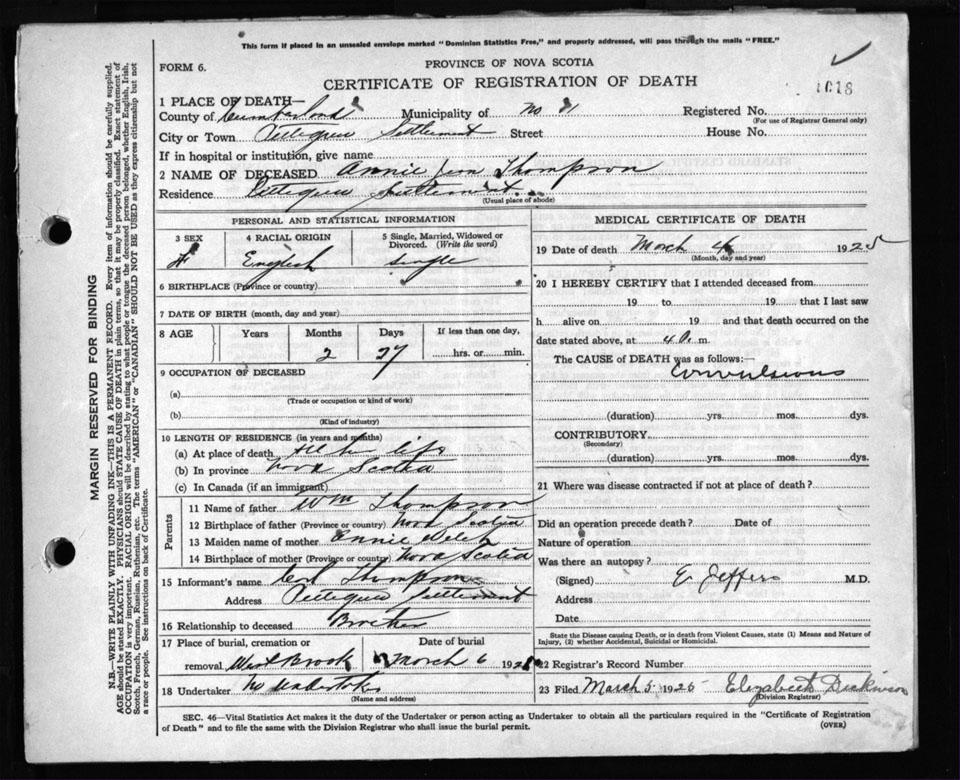 This form if placed in an unsealed envelope marked "Dominion Statistics Free," and properly addressed, will pass through the mails "FREE."
FORM 6.
PROVINCE OF NOVA SCOTIA
CERTIFICATE OF REGISTRATION OF DEATH
1018
1 PLACE OF DEATH—
County of Cumberland Municipality of No 1 Registered No.
(For use of Registrar General only)
City or Town Settlement Street House No.
If in hospital or institution, give name
2 NAME OF DECEASED Annie Thompson
Residence Settlement
(Usual place of abode)
PERSONAL AND STATISTICAL INFORMATION
3 SEX 4 RACIAL ORIGIN 5 Single, Married, Widowed or Divorced. (Write the word)
F English single
6 BIRTHPLACE (Province or country)
7 DATE OF BIRTH (month, day and year)
8 AGE Years Months Days If less than one day,
2 27 hrs. or min.
9 OCCUPATION OF DECEASED
(a)
(Trade or occupation or kind of work)
(b)
(Kind of industry)
10 LENGTH OF RESIDENCE (in years and months)
(a) At place of death All her life
(b) In province Nova Scotia
(c) In Canada (if an immigrant)
Parents
11 Name of father Wm Thompson
12 Birthplace of father (Province or country) Nova Scotia
13 Maiden name of mother Annie
14 Birthplace of mother (Province or country) Nova Scotia
15 Informant's name Thompson
Address Settlement
16 Relationship to deceased Brother
17 Place of burial, cremation or Date of burial
removal West Brook March 6 1925
18 Undertaker No Undertaker
(Name and address)
MEDICAL CERTIFICATE OF DEATH
19 Date of death March 4 1925
(Month, day and year)
20 I HEREBY CERTIFY that I attended deceased from
19 to 19 that I last saw
h alive on 19 and that death occurred on the
date stated above, at 4 a. m.
The CAUSE of DEATH was as follows:—
Convulsions
(duration) yrs. mos. dys.
CONTRIBUTORY
(Secondary)
(duration) yrs. mos. dys.
21 Where was disease contracted if not at place of death?
Did an operation precede death? Date of
Nature of operation
Was there an autopsy?
(Signed) E Jeffers M.D.
Address
Date
State the Disease causing Death, or in death from Violent Causes, state (1) Means and Nature of Injury, (2) whether Accidental, Suicidal or Homicidal.
22 Registrar's Record Number
23 Filed March 5 1925 Elizabeth Dickinson
(Division Registrar)
SEC. 46—Vital Statistics Act makes it the duty of the Undertaker or person acting as Undertaker to obtain all the particulars required in the "Certificate of Registration
of Death" and to file the same with the Division Registrar who shall issue the burial permit. (OVER)
MARGIN RESERVED FOR BINDING
N.B.—WRITE PLAINLY WITH UNFADING INK—THIS IS A PERMANENT RECORD. Every item of information should be carefully supplied.
AGE should be stated EXACTLY. PHYSICIANS should STATE CAUSE OF DEATH in plain terms, so that it may be properly classified. Exact statement of
OCCUPATION is very important. RACIAL ORIGIN will be described by stating to what people or tongue the deceased person belonged, whether English, Irish,
Scotch, French, German, Russian, Ruthenian, etc. The terms "AMERICAN" or "CANADIAN" SHOULD NOT BE USED as they express citizenship but not
a race or people. See instructions on back of Certificate.